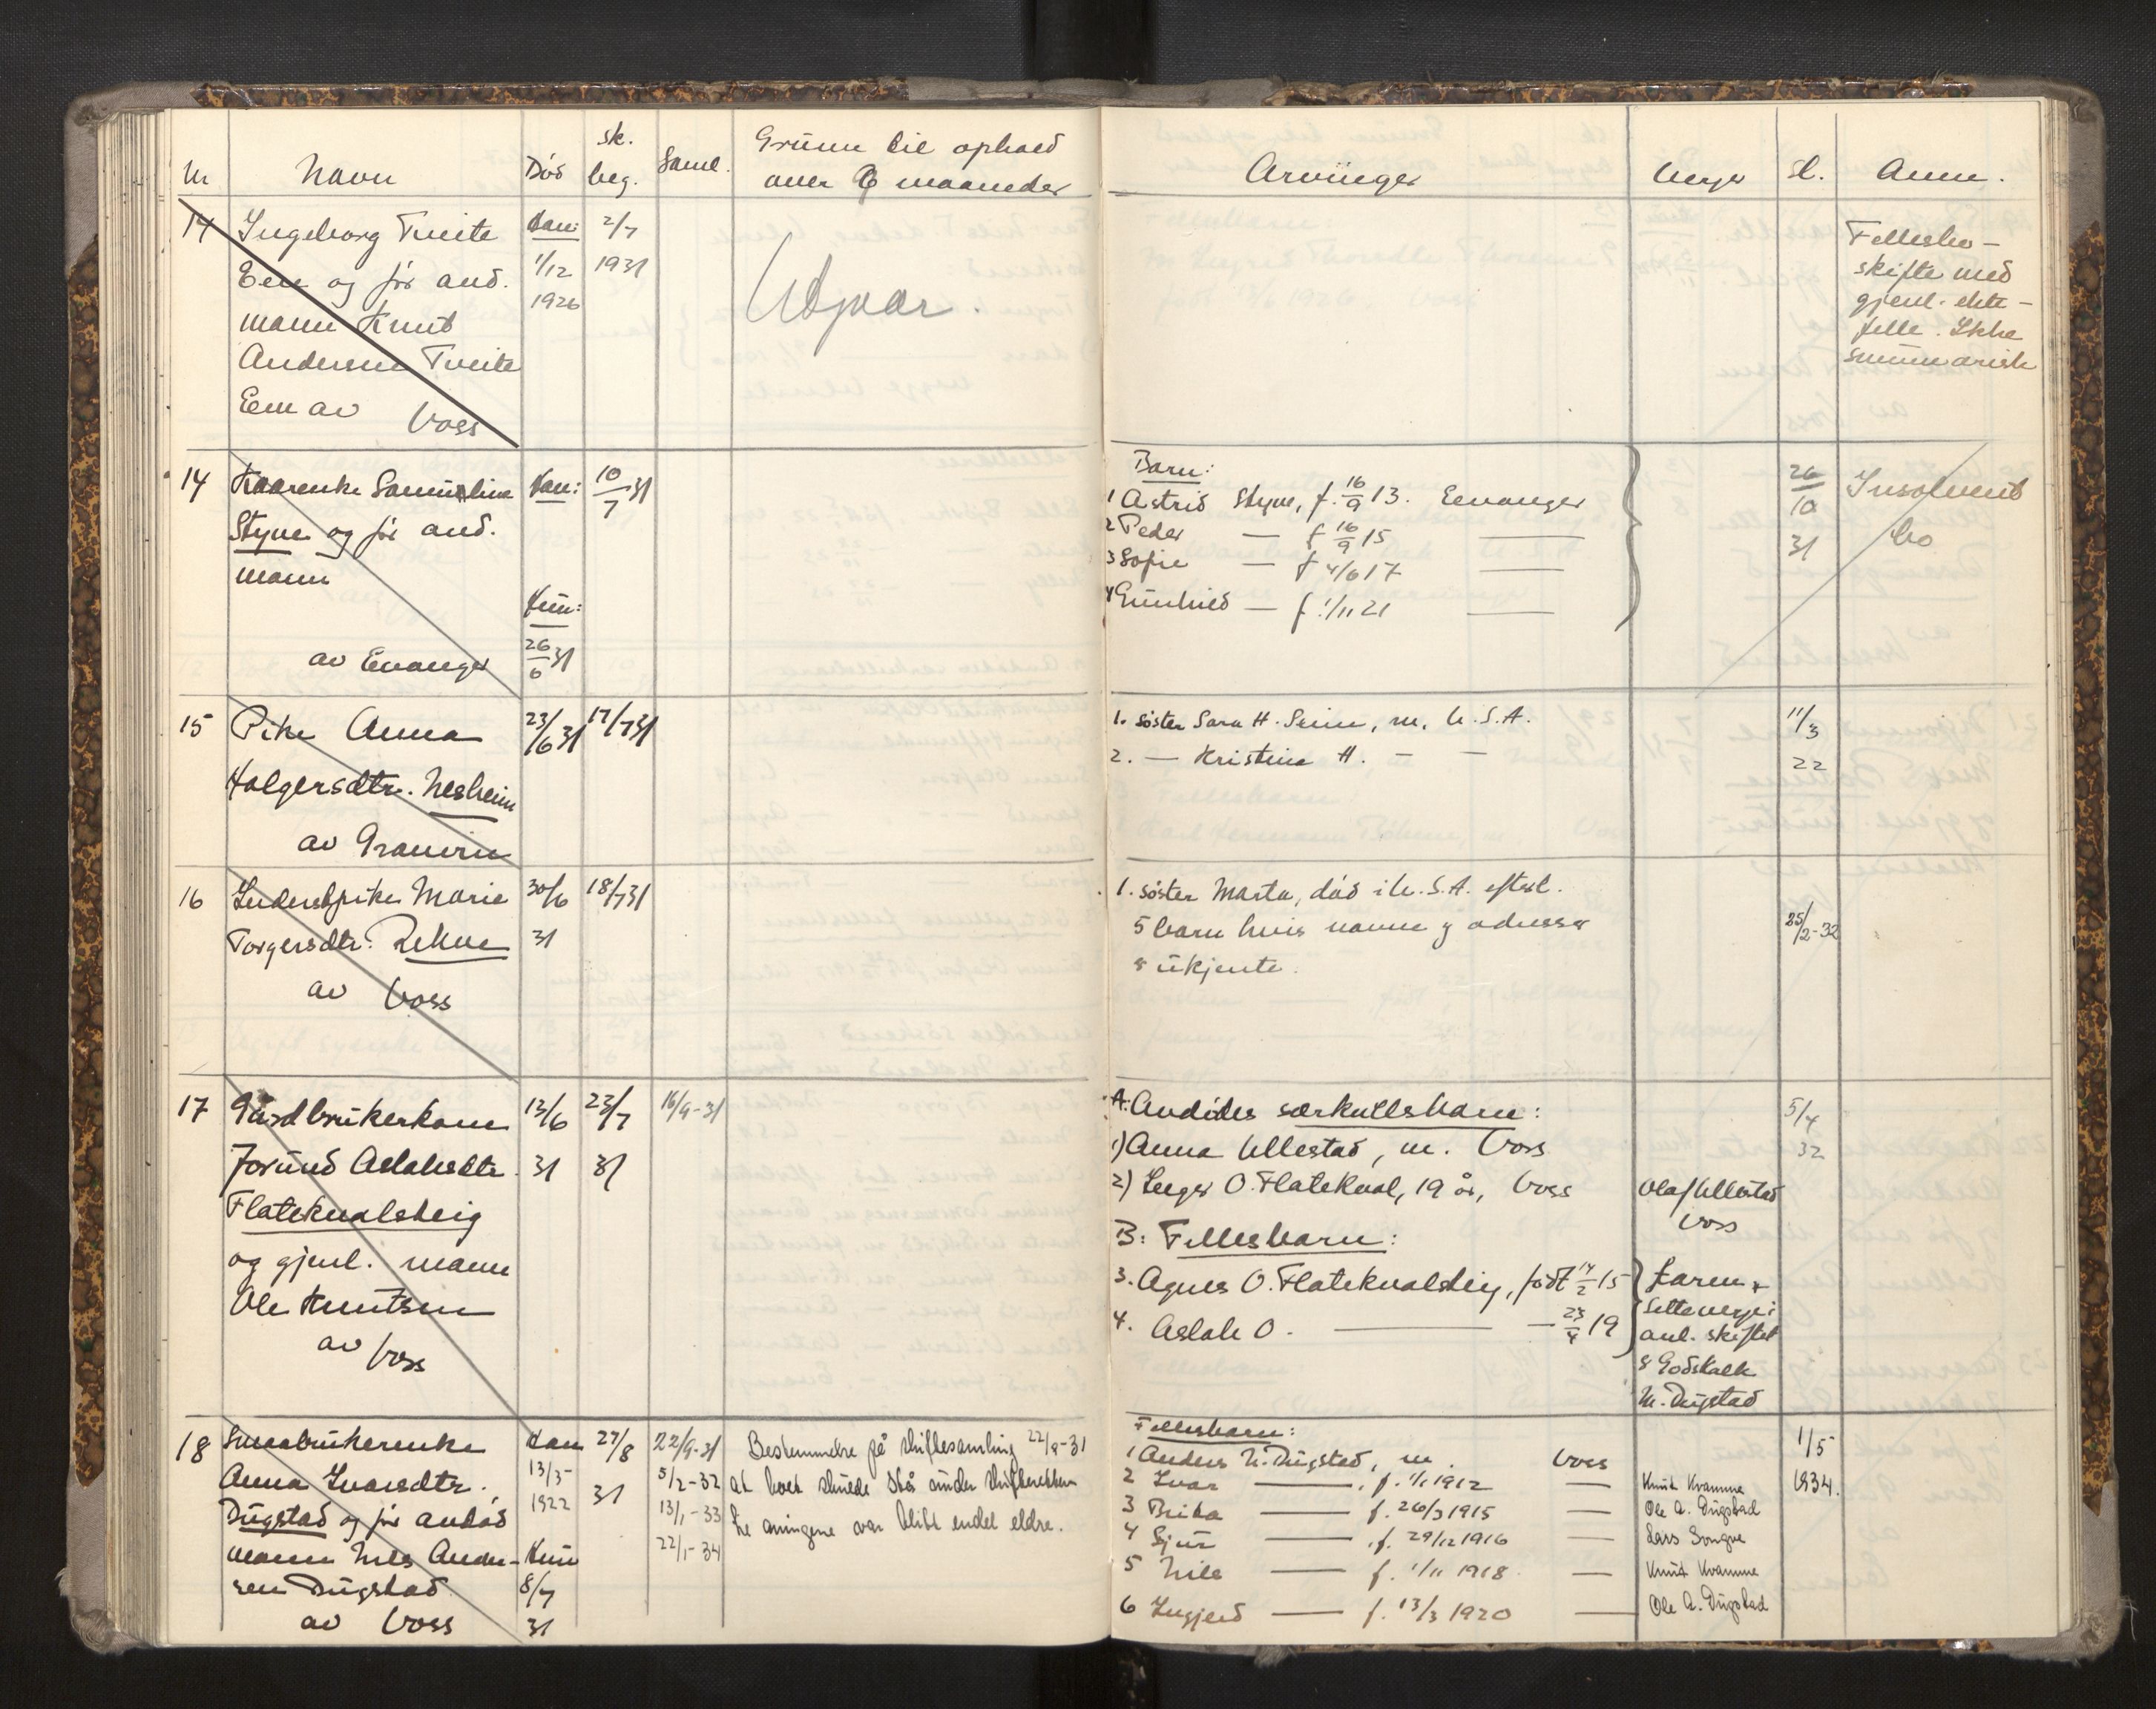 Nr Navn Død sk. beg. Saml. Grunn til ophold over 6 maaneder Arvinger Verger Sl. Anm.
14 Ingeborg Tveite Han: 2/7
Een og før avd. 1/12 1931
mann Knut 1926
Andersen Tveite
Een av Voss
Utgaar.
Fellesbo-
skifte med
gjenl. ekte-
felle. Ikke
summarisk
14 Kaarenke Samueline Han: 10/7 31
Styve og før avd.
mann
Hun:
av Evanger 26/6 31
Barn:
1 Astrid Styve, f. 16/9 13. Evanger
2 Peder — f 16/9 15 —
3 Sofie — f 4/6 17 —
4 Gunhild — f. 1/11 21 —
26/10 31
Insolvent
bo
15 Pike Anna 23/6 31 17/7 31
Holgersdtr. Nesheim
av Granvin
1. søster Sara H. Seim, m, U.S.A.
2. — Kristine H. — —
11/3
22
16 Inderstpike Marie 30/6 18/7 31
Torgersdtr. Rekve 31
av Voss
1. søster Marta, død i U.S.A. efterl.
5 barn hvis navne og adresse
er ukjente.
25/2-32
17 Gårdbrukerkone 13/6 23/7 16/9-31
Jorund Aslaksdtr. 31 31
Flatekvalsteig
og gjenl. mann
Ole Knutsen
av Voss
A: Avdødes særkullsbarn:
1) Anna Ullestad, m. Voss
2) Inger O. Flatekval, 19 år, Voss Olaf Ullestad
Voss
B: Fellesbarn:
3. Agnes O. Flatekvalsteig, født 14/2 15
4. Aslak O. — — 23/4 19
faren +
setteverge i
anl. skiftet
er Godskalk
M. Dugstad
5/4
32
18 Smaabrukerenke Han 27/8 22/9-31 Bestemmelse på skiftesamling 22/9-31
Anna Ivarsdtr. 13/5 31 5/2-32 at boet skulde stå under skifteretten
Dugstad og før avdød 1922 13/1-33 til arvingene var blitt endel eldre.
mann Nils Ander- Hun 22/1-34
sen Dugstad 8/7
av Voss 31
Fellesbarn:
1 Anders N. Dugstad, m. Voss
2 Ivar — f. 1/1 1912 — Knut Kvamme
3 Brita — f. 26/3 1915 — Ole A. Dugstad
4 Sjur — f. 29/12 1916 — Lars Songve
5 Nils — f. 1/11 1918 — Knut Kvamme
6 Ingjerd — f. 13/3 1920 — Ole A. Dugstad
1/5
1934.